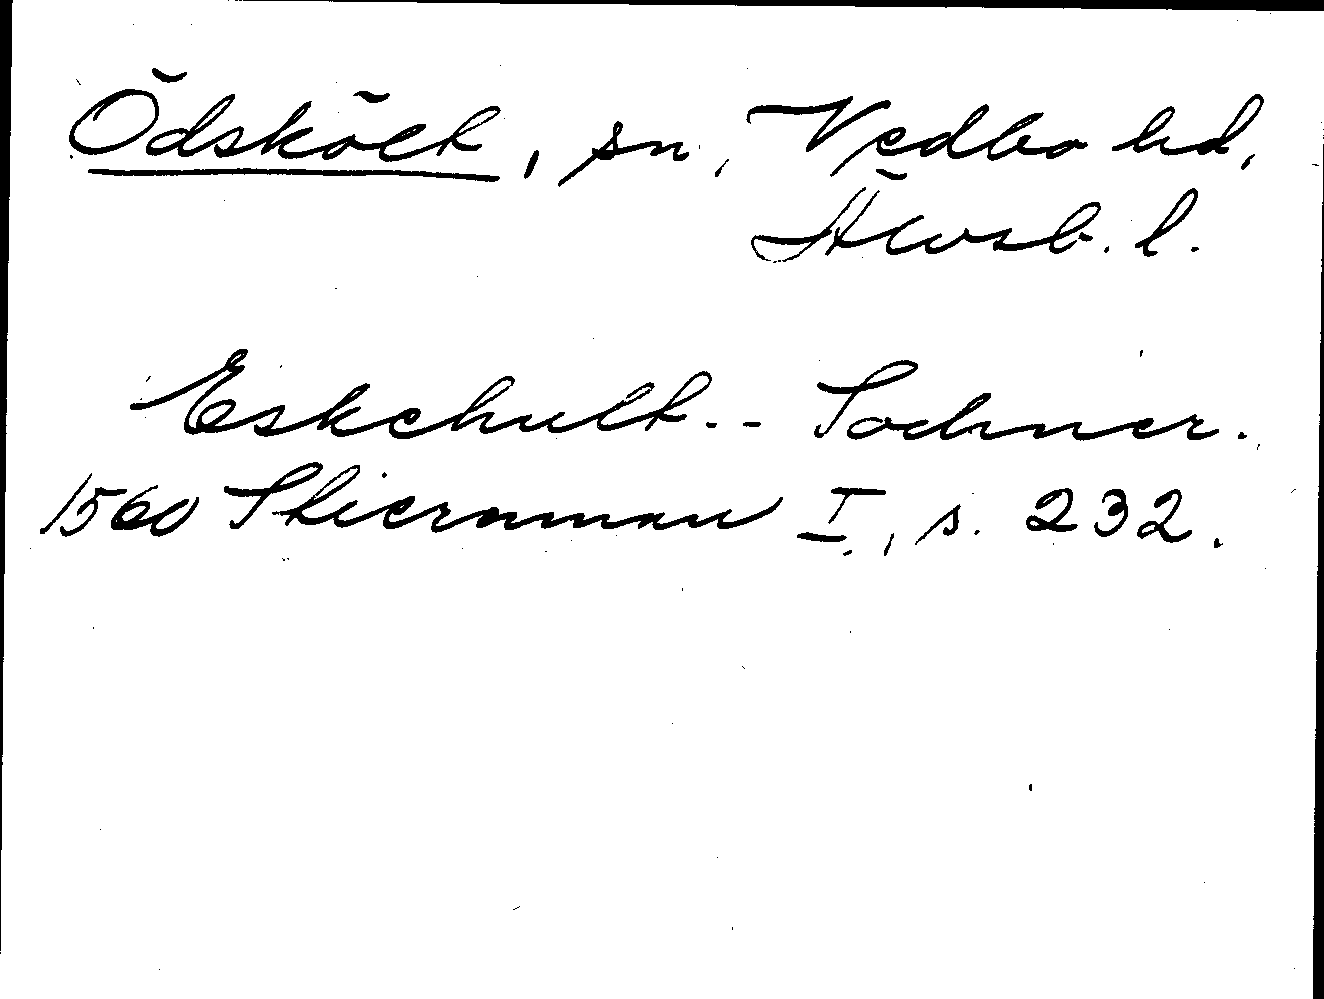 Ödskölt, sn, Vedbo hd,
Älvsb. l.
Eskchullt -- Sochner.
1560 Stiernman I, s. 232.